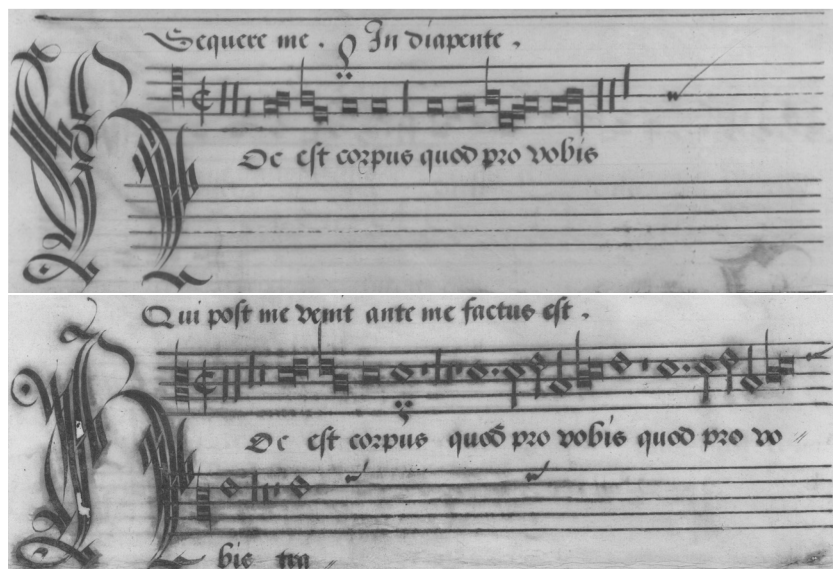 Sequere me. In diapente.
Hoc est corpus quod pro vobis
Qui post me venit ante me factus est.
Hoc est corpus quod pro vobis quod pro vo
bis tra